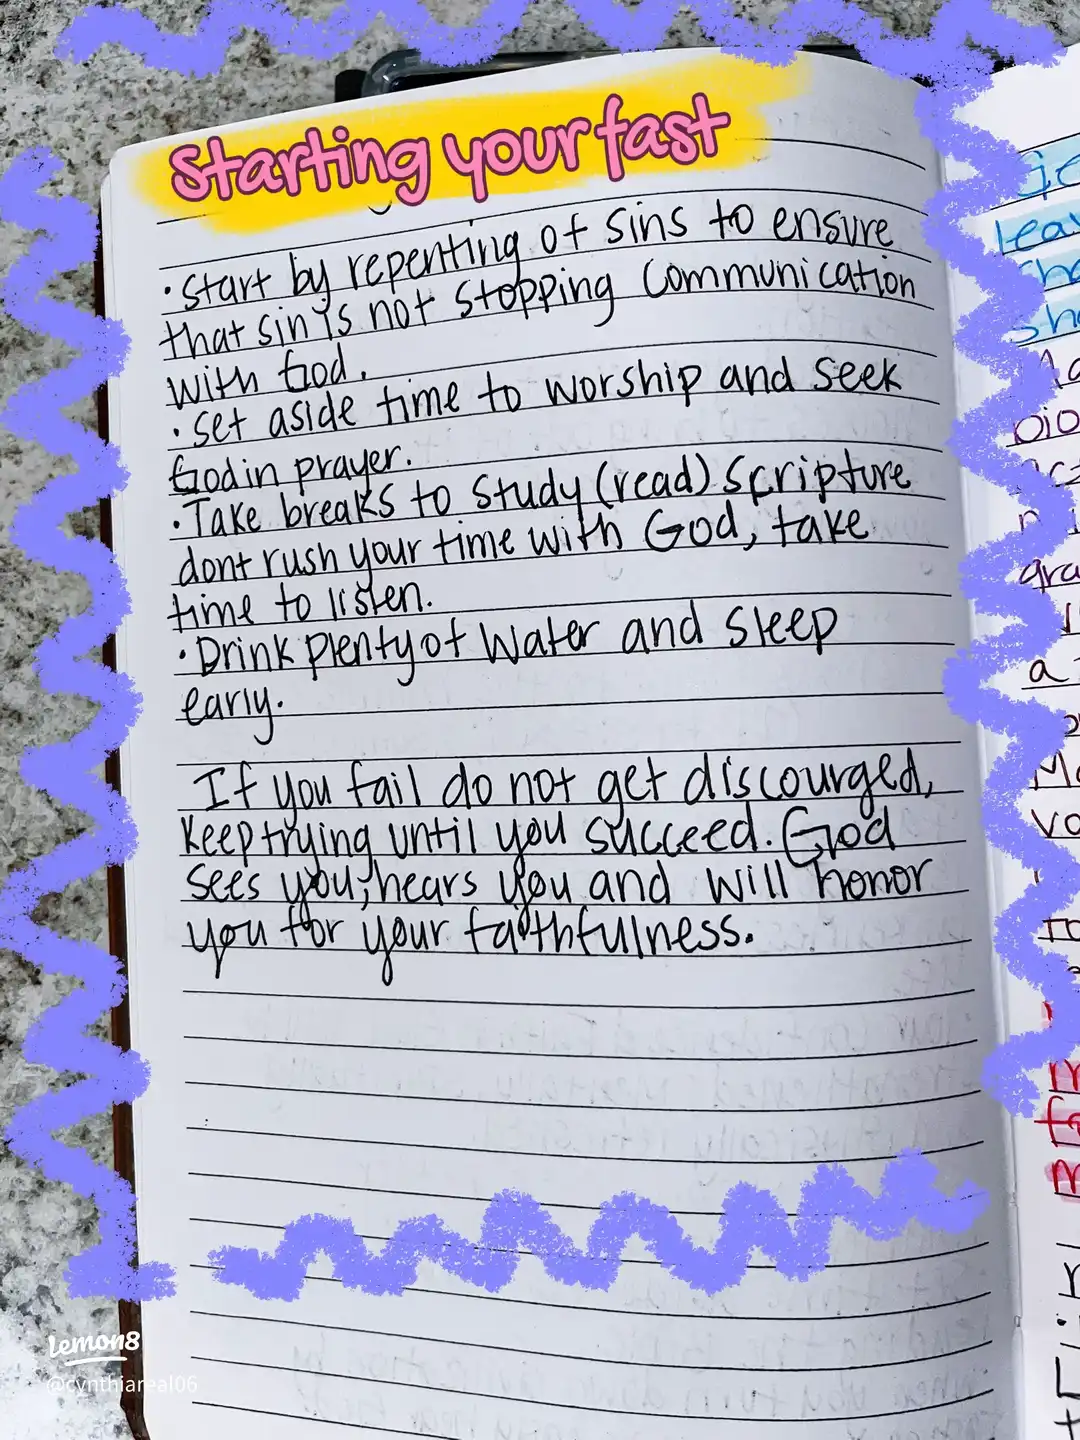 Starting your fast
• Start by repenting of sins to ensure
that sin is not stopping communication
with God.
• Set aside time to worship and seek
God in prayer.
• Take breaks to study (read) scripture
dont rush your time with God, take
time to listen.
• Drink plenty of water and sleep
early.
If you fail do not get discourged,
keep trying until you succeed. God
sees you, hears you and will honor
you for your faithfulness.
lemon8
@cynthiareal06